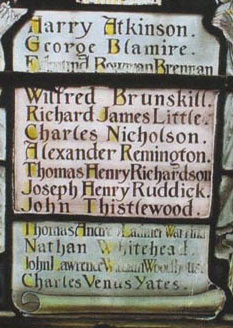 Harry Atkinson.
George Blamire.
Edmund Bowman Brennan
Wilfred Brunskill.
Richard James Little.
Charles Nicholson.
Alexander Remington.
Thomas Henry Richardson
Joseph Henry Ruddick.
John Thistlewood.
Thomas Andrew
Nathan Whitehead.
John Lawrence William
Charles Venus Yates.